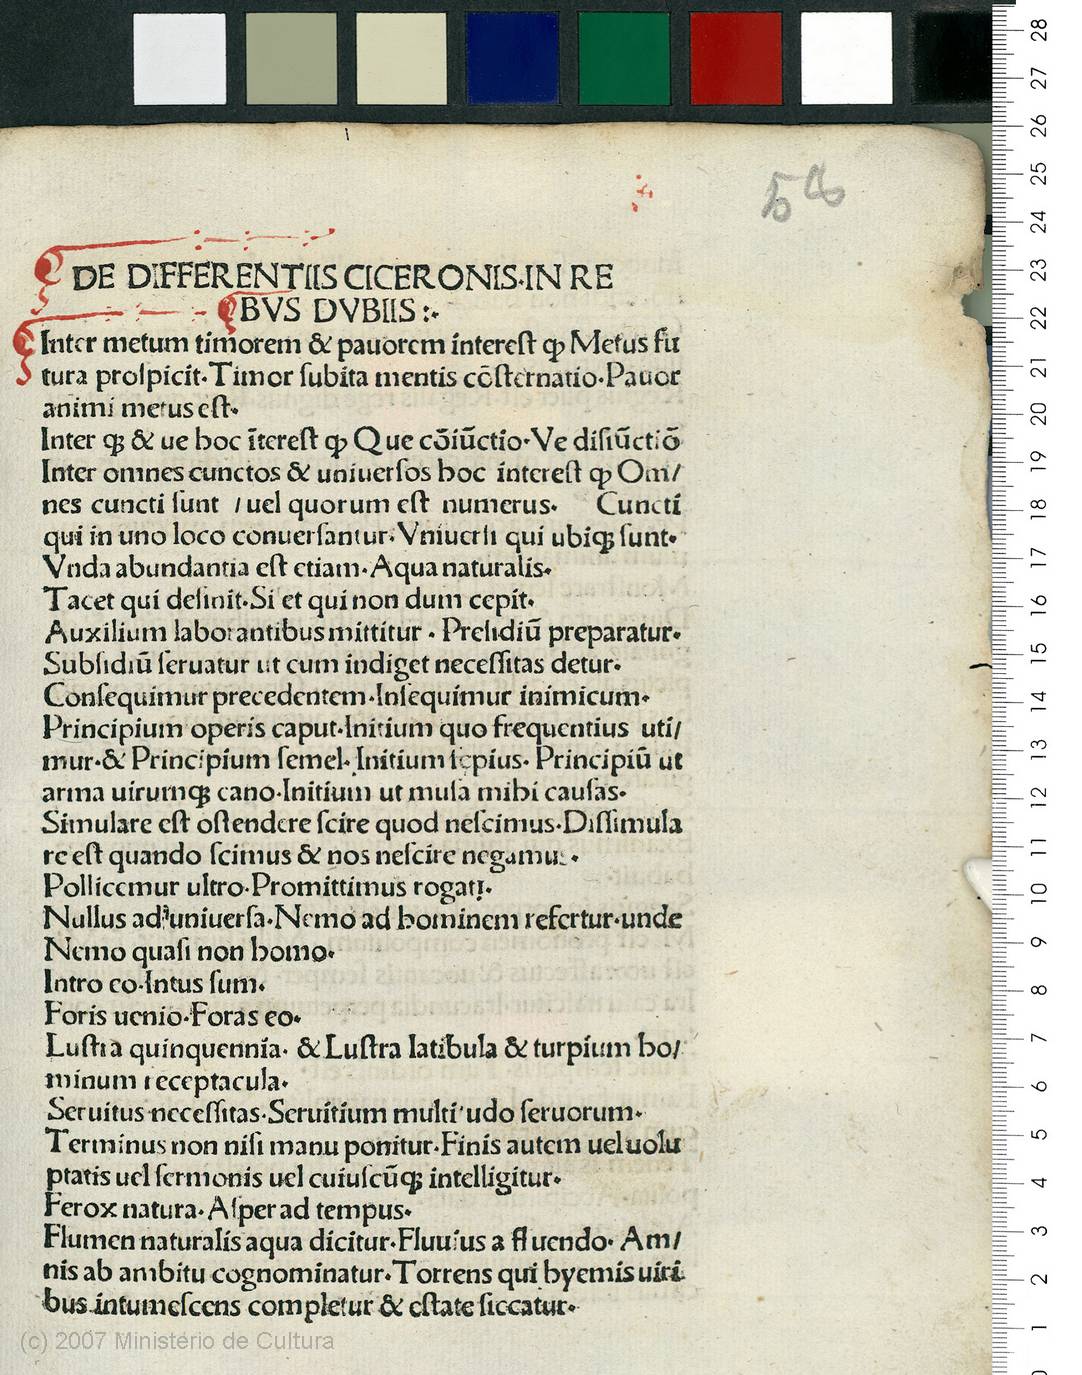 56
DE DIFFERENTIIS CICERONIS·IN RE
BVS DVBIIS :·
Inter metum timorem & pauorem interest ꝙ Metus fu
tura prospicit·Timor subita mentis cõsternatio·Pauor
animi metus est·
Inter qꝫ & ue hoc ĩterest ꝙ Que cõiũctio·Ve disiũctiõ
Inter omnes cunctos & uniuersos hoc interest ꝙ Om/
nes cuncti sunt / uel quorum est numerus· Cuncti
qui in uno loco conuersantur· Vniuersi qui ubiqꝫ sunt·
Vnda abundantia est etiam·Aqua naturalis·
Tacet qui desinit·Si et qui non dum cepit·
Auxilium laborantibus mittitur · Presidiũ preparatur·
Subsidiũ seruatur ut cum indiget necessitas detur·
Consequimur precedentem·Insequimur inimicum·
Principium operis caput·Initium quo frequentius uti/
mur·& Principium semel· Initium sepius· Principiũ ut
arma uirumqꝫ cano·Initium ut musa mihi causas·
Simulare est ostendere scire quod nescimus·Dissimula
re est quando scimus & nos nescire negamus ·
Pollicemur ultro·Promittimus rogati·
Nullus ad uniuersa·Nemo ad hominem refertur·unde
Nemo quasi non homo·
Intro eo·Intus sum·
Foris uenio·Foras eo·
Lustra quinquennia· & Lustra latibula & turpium ho/
minum receptacula·
Seruitus necessitas·Seruitium multitudo seruorum·
Terminus non nisi manu ponitur·Finis autem uel uolu
ptatis uel sermonis uel cuiuscũqꝫ intelligitur·
Ferox natura·Asper ad tempus·
Flumen naturalis aqua dicitur·Fluuius a fluendo· Am/
nis ab ambitu cognominatur·Torrens qui hyemis uiri
bus intumescens completur & estate siccatur·
(c) 2007 Ministério de Cultura
28
27
26
25
24
23
22
21
20
19
18
17
16
15
14
13
12
11
10
9
8
7
6
5
4
3
2
1